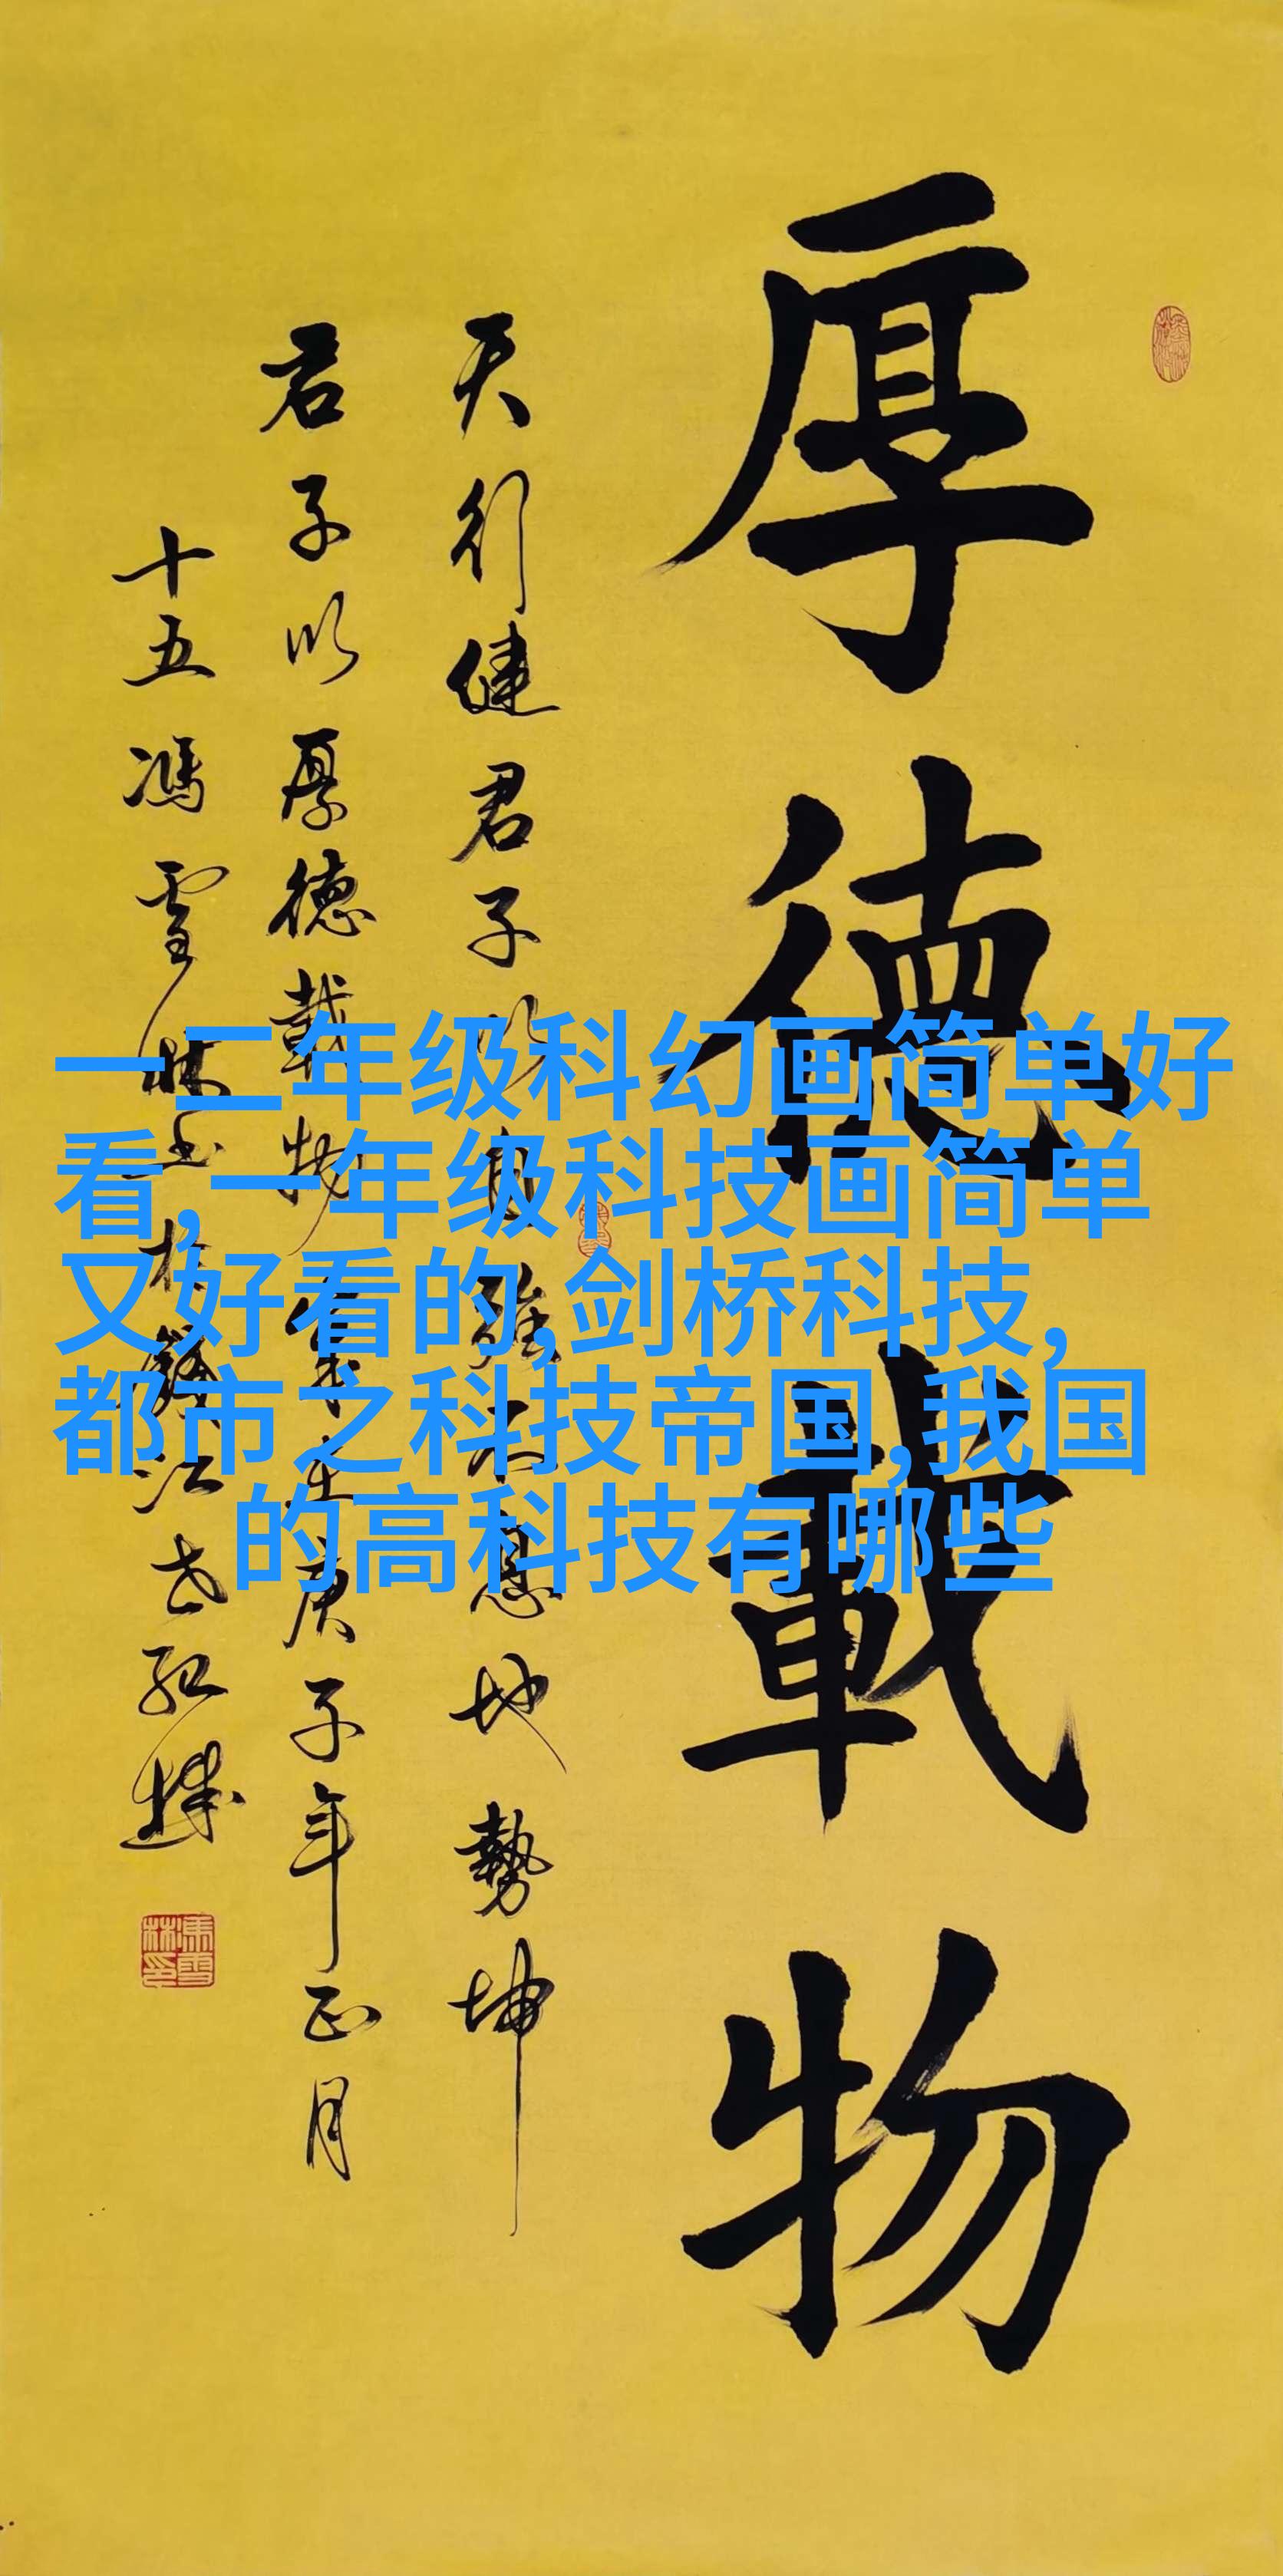 厚德載物
天行健君子以自強不息地勢坤
君子以厚德載物
庚子年正月
十五馮雪林书於
一二年级科幻画简单好
看,一年级科技画简单
又好看的,剑桥科技,
都市之科技帝国,我国
的高科技有哪些